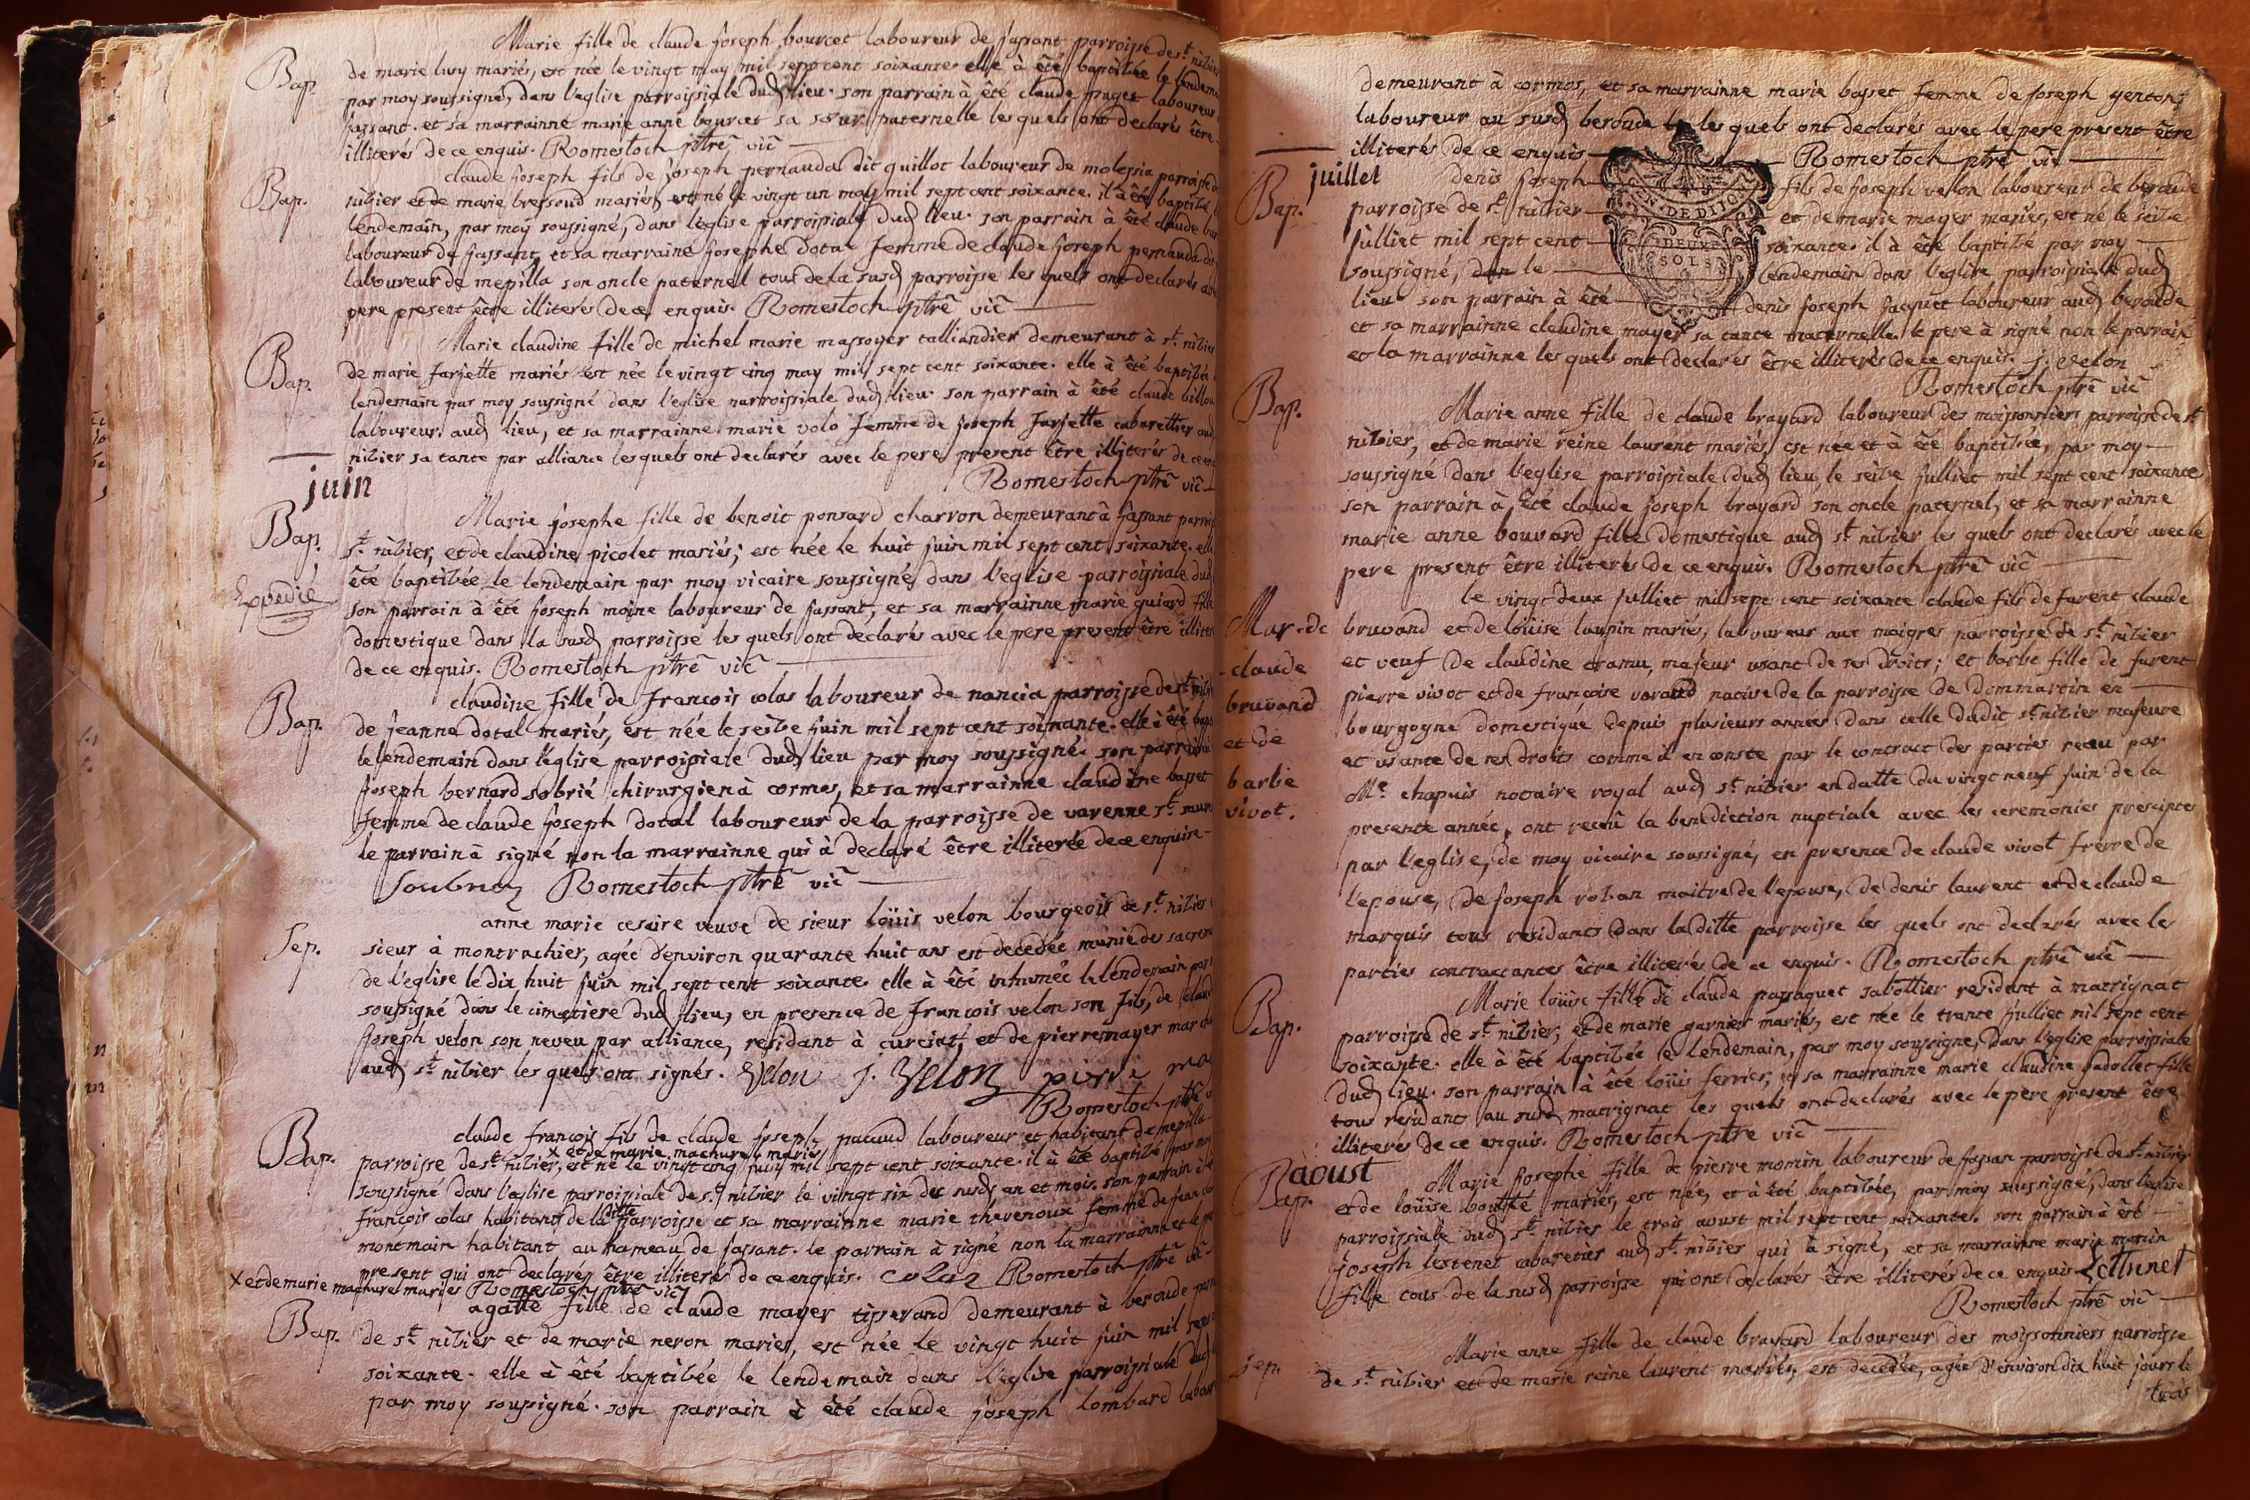 Marie fille de claude joseph bourcet laboureur de jassant parroisse de st nibier
Bap. de marie luvy mariés, est née le vingt may mil sept cent soixante. elle à été baptisée le lendemain
par moy soussigné, dans l'eglise parroissiale dud lieu. son parrain à été claude puget laboureur
jassant. et sa marrainne marie anne bourcet sa sœur paternelle les quels ont declarés être
illiterés de ce enquis. Romestoch ptrē vic̄
claude joseph fils de joseph pernauda dit quillot laboureur de molepia parroisse de
Bap. nibier et de marie bressoud mariés, est né le vingt un may mil sept cent soixante. il à été baptisé
lendemain, par moy soussigné, dans l'eglise parroissiale dud lieu. son parrain à été claude
laboureur de jassant, et sa marraine josephe dotal femme de claude joseph pernauda
laboureur de mepilla son oncle paternel tous de la susd parroisse les quels ont declarés
pere present être illiterés de ce enquis. Romestoch ptrē vic̄
Marie claudine fille de michel marie massoyer talliandier demeurant à st nibier
Bap. de marie farjette mariés est née le vingt cinq may mil sept cent soixante. elle à été baptisée
lendemain par moy soussigné dans l'eglise parroissiale dud lieu son parrain à été claude billon
laboureur aud lieu, et sa marrainne marie volo femme de joseph farjette cabarettier aud
nibier sa tante par alliance les quels ont declarés avec le pere present être illiterés de ce
Romestoch ptrē vic̄
juin
Marie josephe fille de benoit ponsard charron demeurant à jassant
Bap. st nibier, et de claudine picolet mariés; est née le huit juin mil sept cent soixante. elle
été baptisée le lendemain par moy vicaire soussigné dans l'eglise parroissiale dud
Expedié son parrain à été joseph moine laboureur de jassant, et sa marrainne marie guiard fille
domestique dans la susd parroisse les quels ont declarés avec le pere present être
de ce enquis. Romestoch ptrē vic̄
claudine fille de francois colas laboureur de nancia parroisse de st
Bap. de jeanne dotal mariés, est née le seibe juin mil sept cent soixante. elle à été
le lendemain dans l'eglise parroissiale dud lieu par moy soussigné. son parrain
joseph bernard sobrié chirurgien à cormos, et sa marrainne claudine basset
femme de claude joseph dotal laboureur de la parroisse de varenne st
le parrain à signé non la marrainne qui à declaré être illiterée de ce enquise
Romestoch ptrē vic̄
anne marie cesaire veuve de sieur loüis velon bourgeois de st nibier
Sep. sieur à montrachier, agée d'environ quarante huit ans est decedée munie des
de l'eglise le dix huit juin mil sept cent soixante. elle à été inhumée le lendemain
soussigné dans le cimetiere dud lieu, en presence de francois velon son fils, de
joseph velon son neveu par alliance, residant à curciat, et de pierre mayer
aud st nibier les quels ont signés. Velon j. Velon pierre ma
Romestoch ptrē
claude francois fils de claude joseph pacaud laboureur et habitant de mepilla
x et de marie machurel mariés
Bap. parroisse de st nibier, est né le vingt cinq juin mil sept cent soixante. il à été baptisé par moy
soussigné dans l'eglise parroissiale de st nibier le vingt six des susd an et mois. son parrain
francois colas habitant de la ditte parroisse et sa marrainne marie thevenoux femme de
montmain habitant au hameau de jassant. le parrain à signé non la marrainne et
present qui ont declarés être illiterés de ce enquis. colas Romestoch ptrē vic̄
x et de marie machurel mariés Romestoch ptrē vic̄
agatte fille de claude mayer tisserand demeurant à beroude
Bap. de st nibier et de marie neron mariés, est née le vingt huit juin mil sept
soixante. elle à été baptisée le lendemain dans l'eglise parroissiale dud
par moy soussigné. son parrain à été claude joseph lombard
demeurant à cormos, et sa marrainne marie basset femme de joseph
laboureur au susd beroude les quels ont declarés avec le pere present être
illiterés de ce enquis Romestoch ptrē vic̄
juillet
GEN. DE DIJON
DEUX
SOLS
denis joseph fils de joseph velon laboureur de beroude
Bap. parroisse de st nibier et de marie mayer mariés, est né le seibe
julliet mil sept cent soixante. il à été baptisé par moy
soussigné, dan le lendemain dans l'eglise parroissiale dud
lieu. son parrain à été denis joseph jacquet laboureur aud beroude
et sa marrainne claudine mayer sa tante maternelle. le pere à signé non le parrain
et la marrainne les quels ont declarés être illiterés de ce enquis. j. velon
Romestoch ptrē vic̄
Bap. Marie anne fille de claude brayard laboureur des moissonniers parroisse de st
nibier, et de marie reine laurent mariés est née et à été baptisée, par moy
soussigné dans l'eglise parroissiale dud lieu le seibe julliet mil sept cent soixante
son parrain à été claude joseph brayard son oncle paternel, et sa marrainne
marie anne bouvard fille domestique aud st nibier les quels ont declarés avec le
pere present être illiterés de ce enquis. Romestoch ptrē vic̄
le vingt deux julliet mil sept cent soixante claude fils de furent claude
Mar. de claude bruvand et de barbe vivot.
bruvand et de loüise lunpin mariés, laboureur aux maigres parroisse de st nibier
et veuf de claudine cramu, majeur usant de ses droits; et barbe fille de furent
pierre vivot et de francoise varaud native de la parroisse de dommartin en
bourgogne domestique depuis plusieurs années dans celle dudit st nibier majeure
et usante de ses droits comme il en conste par le contract des parties receu par
Me chapuis notaire royal aud st nibier en datte du vingt neuf juin de la
presente année, ont receû la benediction nuptiale avec les ceremonies prescriptes
par l'eglise, de moy vicaire soussigné, en presence de claude vivot frerre de
l'epouse, de joseph roban maitre de l'epouse, de denis laurent et de claude
marquis tous residants dans la ditte parroisse les quels ont declarés avec les
parties contractantes être illiterés de ce enquis. Romestoch ptrē vic̄
Marie loüise fille de claude passaquet sabottier residant à matrignat
Bap. parroisse de st nibier, et de marie garnier mariés, est née le trante julliet mil sept cent
soixante. elle à été baptisée le lendemain, par moy soussigné, dans l'eglise parroissiale
dud lieu. son parrain à été loüis ferrier, et sa marrainne marie claudine gadollet fille
tous residants au susd matrignat les quels ont declarés avec le pere present être
illiterés de ce enquis. Romestoch ptre vic̄
àoust
Marie josephe fille de pierre momin laboureur de jassan parroisse de st nibier
Bap. et de loüise bouffé mariés, est née, et à été baptisée, par moy soussigné, dans l'eglise
parroissiale dud st nibier le trois aoust mil sept cent soixante. son parrain à été
joseph lestenet cabaretier aud st nibier qui à signé, et sa marrainne marie momin
fille tous de la susd parroisse qui ont declarés être illiterés de ce enquis
Romestoch ptrē vic̄
Marie anne fille de claude brayard laboureur des moissonniers parroisse
sep. de st nibier et de marie reine laurent mariés, est decedée, agée d'environ dix huit jours le
trois